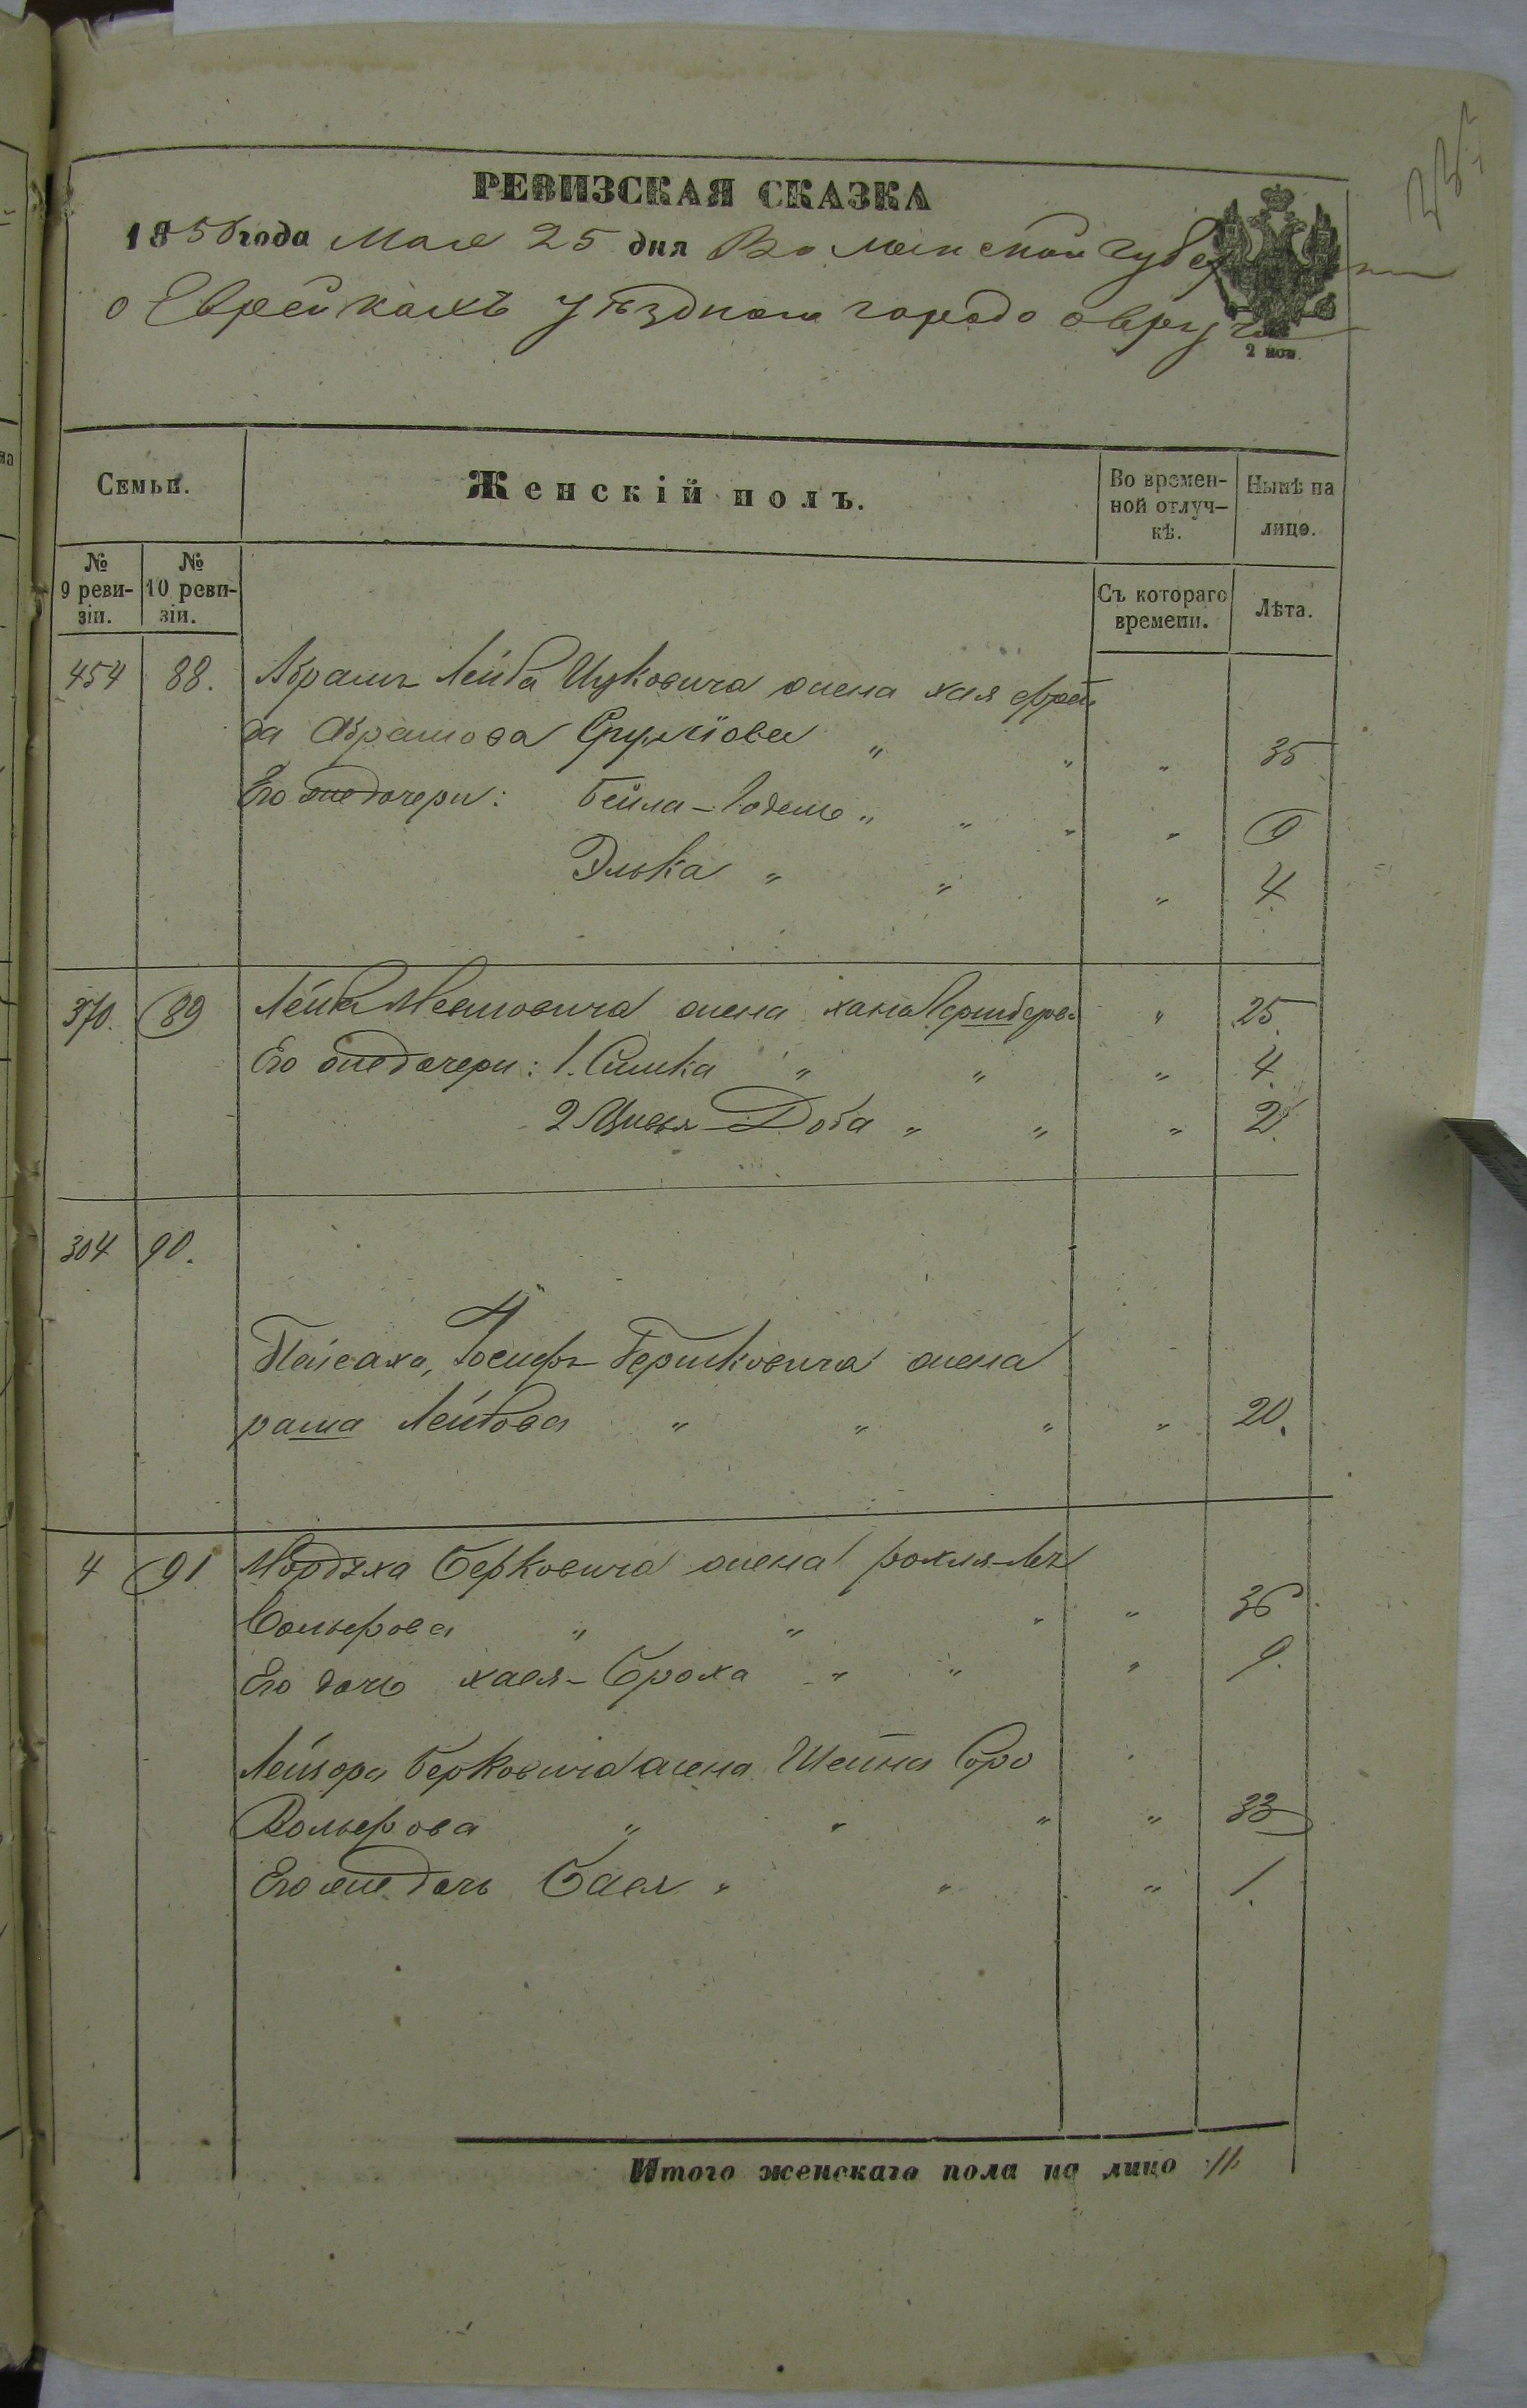 РЕВИЗСКАЯ СКАЗКА
1858 года Мая 25 дня Волынской губернии
о Еврейкахъ уѣзднаго города овруча
2 коп.
Семьи.
Женскій полъ.
Во времен-
ной отлуч-
кѣ.
Нынѣ на
лицо.
№
9 реви-
зіи.
№
10 реви-
зіи.
Съ котораго
времени.
Лѣта.
454 88. Абрамъ Лейба Ицковича жена хая
да Абрамова " " " 35
Его же дочери: Бейла- " " " " 9
Элька " " " 4.
370. 89 Лейба жена хана " 25.
Его же дочери: 1. Симка " " " 4.
2 Цивья-Доба " " " 2.
304 90.
Пейсаха, Іосифъ Гершковича жена
раша Лейбова " " " " 20.
4 91 Мордха Берковича жена рохля-
Вольфова " " " " 36
Его дочь хася-Броха " " " 9.
Лейзора Берковича жена Шейна Соро
Вольфова " " " " 33
Его же дочь Бася " " " 1.
Итого женскаго пола на лицо 11